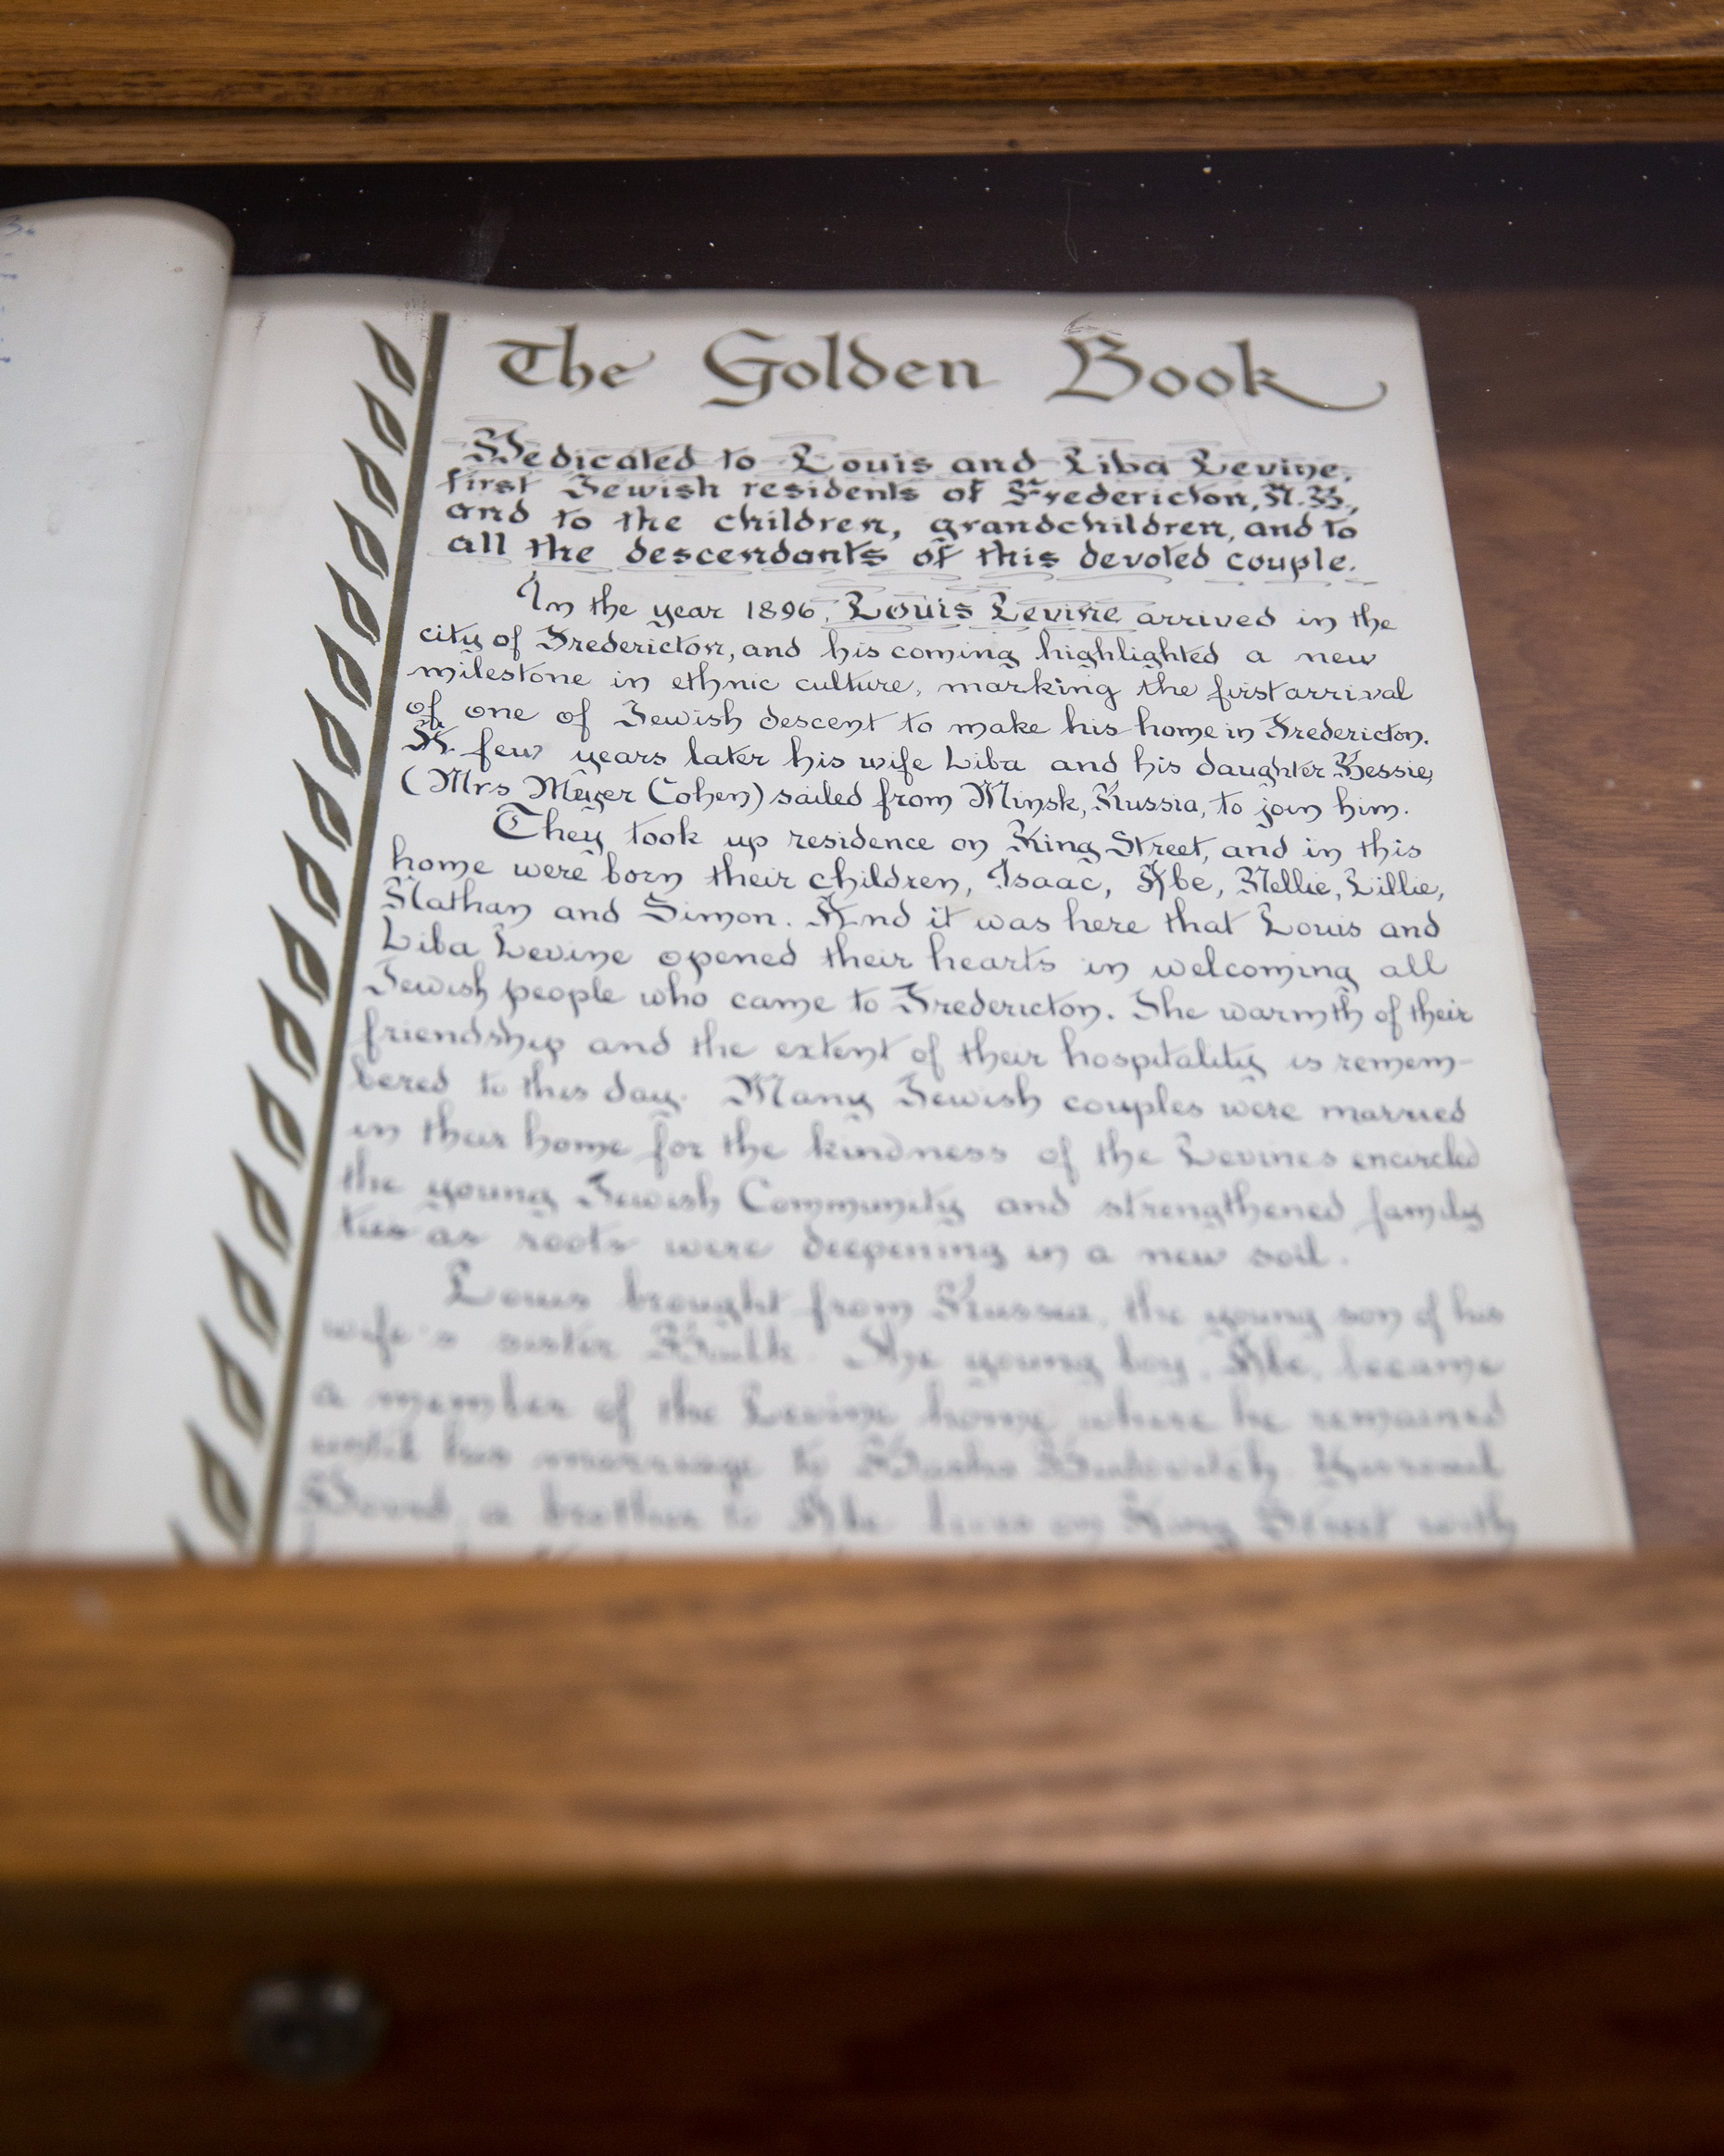 The Golden Book
Dedicated to Louis and Liba Levine,
first Jewish residents of Fredericton, N.B.,
and to the children, grandchildren, and to
all the descendants of this devoted couple.
In the year 1896, Louis Levine arrived in the
city of Fredericton, and his coming highlighted a new
milestone in ethnic culture, marking the first arrival
of one of Jewish descent to make his home in Fredericton.
A few years later his wife Liba and his daughter Bessie,
(Mrs Meyer Cohen) sailed from Minsk, Russia, to join him.
They took up residence on King Street, and in this
home were born their children, Isaac, Abe, Nellie, Lillie,
Nathan and Simon. And it was here that Louis and
Liba Levine opened their hearts in welcoming all
Jewish people who came to Fredericton. The warmth of their
friendship and the extent of their hospitality is remem-
bered to this day. Many Jewish couples were married
in their home for the kindness of the Levines encircled
the young Jewish Community and strengthened family
ties as roots were deepening in a new soil.
Louis brought from Russia, the young son of his
wife's sister. The young boy, Abe, became
a member of the Levine home where he remained
until his marriage to
a brother to Abe lives on King Street with